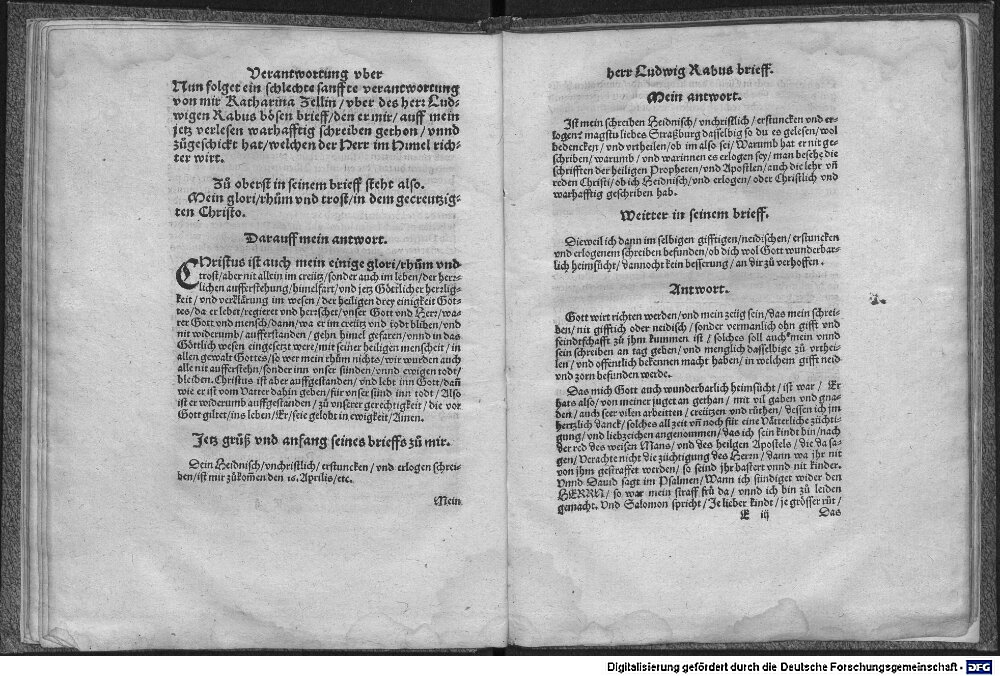 Verantwortung vber
Nun folget ein schlechte sanffte verantwortung
von mir Katharina Zellin/ vber des herr Lud-
wigen Rabus bösen brieff/ den er mir/ auff mein
jetz verlesen warhafftig schreiben gethon/ vnnd
zůgeschickt hat/ welchen der Herr im Himel rich-
ter wirt.
Zů oberst in seinem brieff steht also.
Mein glori/ rhům vnd trost/ in dem gecreutzig-
ten Christo.
Darauff mein antwort.
Christus ist auch mein einige glori/ rhům vnd
trost/ aber nit allein im creütz/ sonder auch im leben/ der herr-
lichen aufferstehung/ himelfart/ vnd jetz Göttlicher herrlig-
keit/ vnd verklärung im wesen/ der heiligen drey einigkeit Got-
tes/ da er lebet/ regieret vnd herrschet/ vnser Gott vnd Herr/ wa-
rer Gott vnd mensch/ dann/ wa er im creütz vnd todt bliben/ vnd
nit widerumb/ aufferstanden/ gehn himel gefaren/ vnnd in das
Göttlich wesen eingesetzt were/ mit seiner heiligen menscheit/ in
allen gewalt Gottes/ so wer mein rhům nichts/ wir wurden auch
alle nit aufferstehn/ sonder inn vnser sünden/ vnnd ewigen todt/
bleiben. Christus ist aber auffgestanden/ vnd lebt inn Gott/ dañ
wie er ist vom Vatter dahin geben/ für vnser sünd inn todt/ Also
ist er widerumb auffgestanden/ zů vnserer gerechtigkeit/ die vor
Gott giltet/ ins leben/ Er/ seie gelobt in ewigkeit/ Amen.
Jetz grůß vnd anfang seines brieffs zů mir.
Dein Heidnisch/ vnchristlich/ erstuncken/ vnd erlogen schrei-
ben/ ist mir zůkom̃en den 16. Aprilis/ etc.
Mein
herr Ludwig Rabus brieff.
Mein antwort.
Ist mein schreiben Heidnisch/ vnchristlich/ erstuncken vnd er-
logen? magstu liebes Straßburg dasselbig so du es gelesen/ wol
bedencken/ vnd vrtheilen/ ob im also sei/ Warumb hat er nit ge-
schriben/ warumb/ vnd warinnen es erlogen sey/ man besehe die
schrifften der heiligen Propheten/ vnd Apostlen/ auch die lehr vñ
reden Christi/ ob ich Heidnisch/ vnd erlogen/ oder Christlich vnd
warhafftig geschriben hab.
Weitter in seinem brieff.
Dieweil ich dann im selbigen gifftigen/ neidischen/ erstuncken
vnd erlogenem schreiben befunden/ ob dich wol Gott wunderbar-
lich heimsücht/ dannocht kein besserung/ an dir zů verhoffen.
Antwort.
Gott wirt richten werden/ vnd mein zeüg sein/ das mein schrei-
ben/ nit gifftich oder neidisch/ sonder vermanlich ohn gifft vnd
feindtschafft zů jhm kummen ist/ solches soll auch mein vnnd
sein schreiben an tag geben/ vnd menglich dasselbige zů vrthei-
len/ vnd offentlich bekennen macht haben/ in welchem gifft neid
vnd zorn befunden werde.
Das mich Gott auch wunderbarlich heimsücht/ ist war/ Er
hats also/ von meiner juget an gethan/ mit vil gaben vnd gna-
den/ auch seer vilen arbeitten/ creützen vnd růthen/ dessen ich im
hertzlich danck/ solches all zeit vñ noch für eine Vätterliche züchti-
gung/ vnd liebzeichen angenommen/ das ich sein kindt bin/ nach
der red des weisen Mans/ vnd des heilgen Apostels/ die da sa-
gen/ Verachte nicht die züchtigung des Herrn/ dann wa jhr nit
von jhm gestraffet werden/ so seind jhr bastert vnnd nit kinder.
Vnnd Dauid sagt im Psalmen/ Wann ich sündiget wider den
HERRN/ so war mein straff frů da/ vnnd ich bin zů leiden
gemacht. Vnd Salomon spricht/ Je lieber kindt/ je grösser růt/
E iij Das
Digitalisierung gefördert durch die Deutsche Forschungsgemeinschaft - DFG